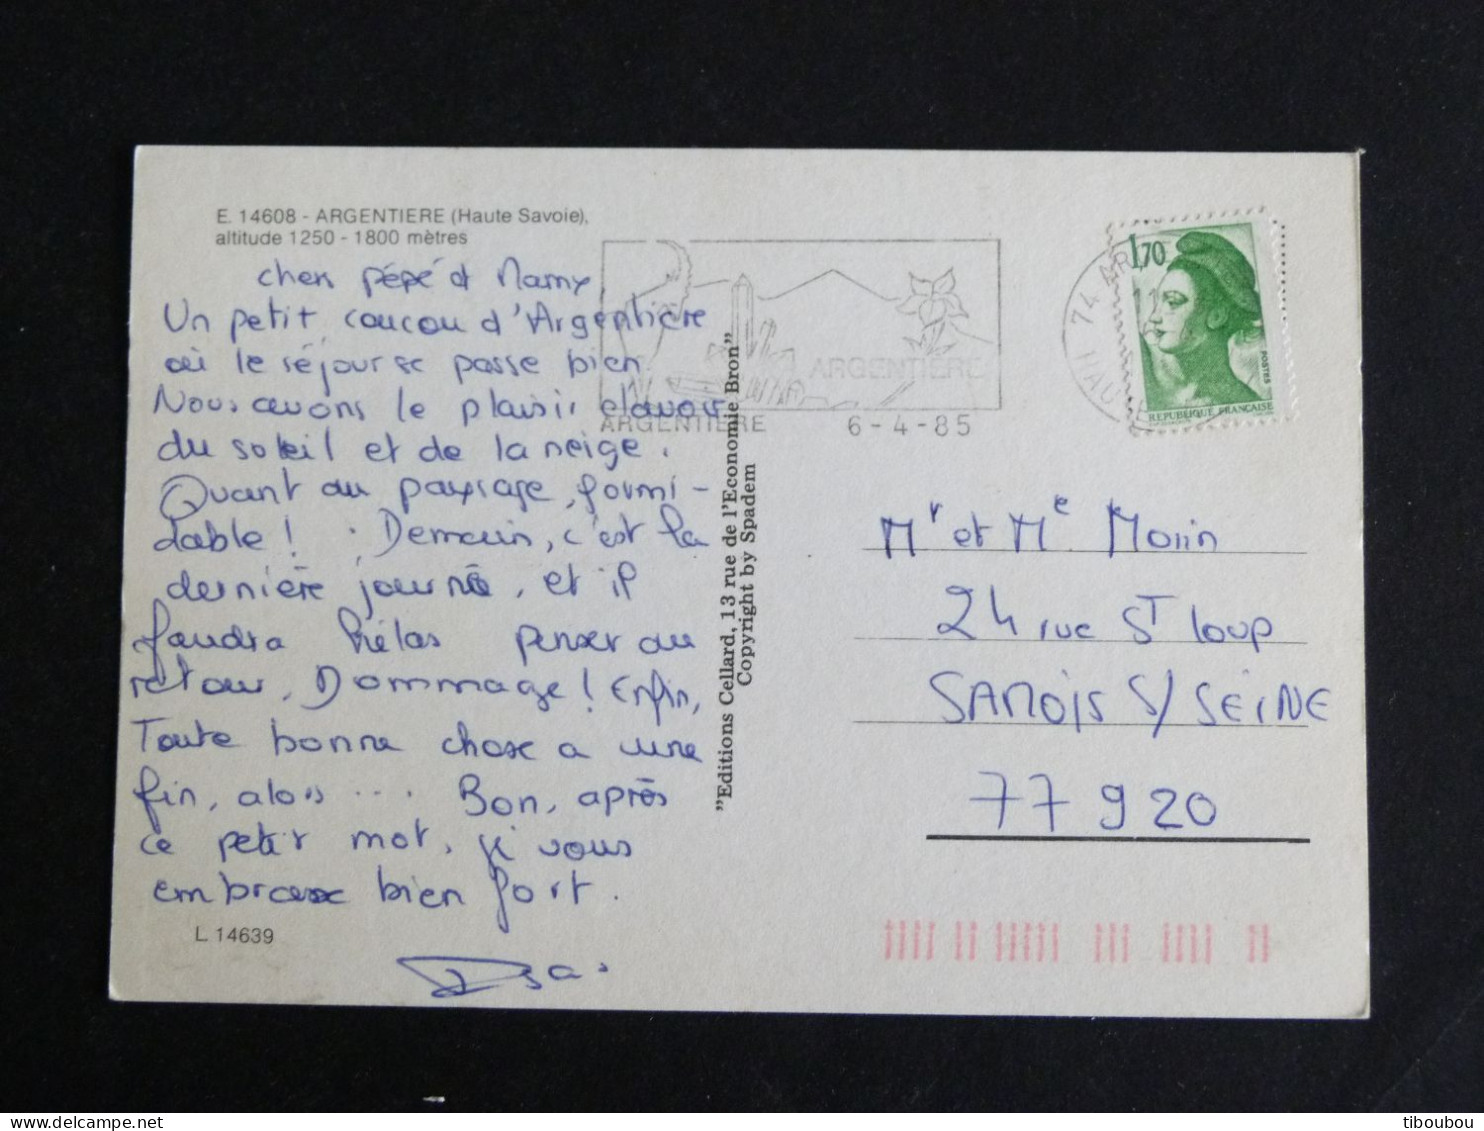 E. 14608 - ARGENTIERE (Haute Savoie),
altitude 1250 - 1800 mètres
chers pépé et Mamy
Un petit coucou d'Argentière
où le séjour se passe bien
Nous avons le plaisir d'avoir
du soleil et de la neige.
Quant au paysage, formi-
dable ! Demain, c'est la
dernière journée, et il
faudra hélas penser au
retour. Dommage ! Enfin,
Toute bonne chose a une
fin, alors ... Bon, après
ce petit mot, je vous
embrasse bien fort.
L. 14639
Isa.
"Editions Cellard, 13 rue de l'Economie Bron"
Copyright by Spadem
ARGENTIERE
ARGENTIERE 6-4-85
74 AR
1,70
POSTES
REPUBLIQUE FRANÇAISE
Mr et Me Morin
24 rue St Loup
SAMOIS S/ SEINE
77920
tiboubou